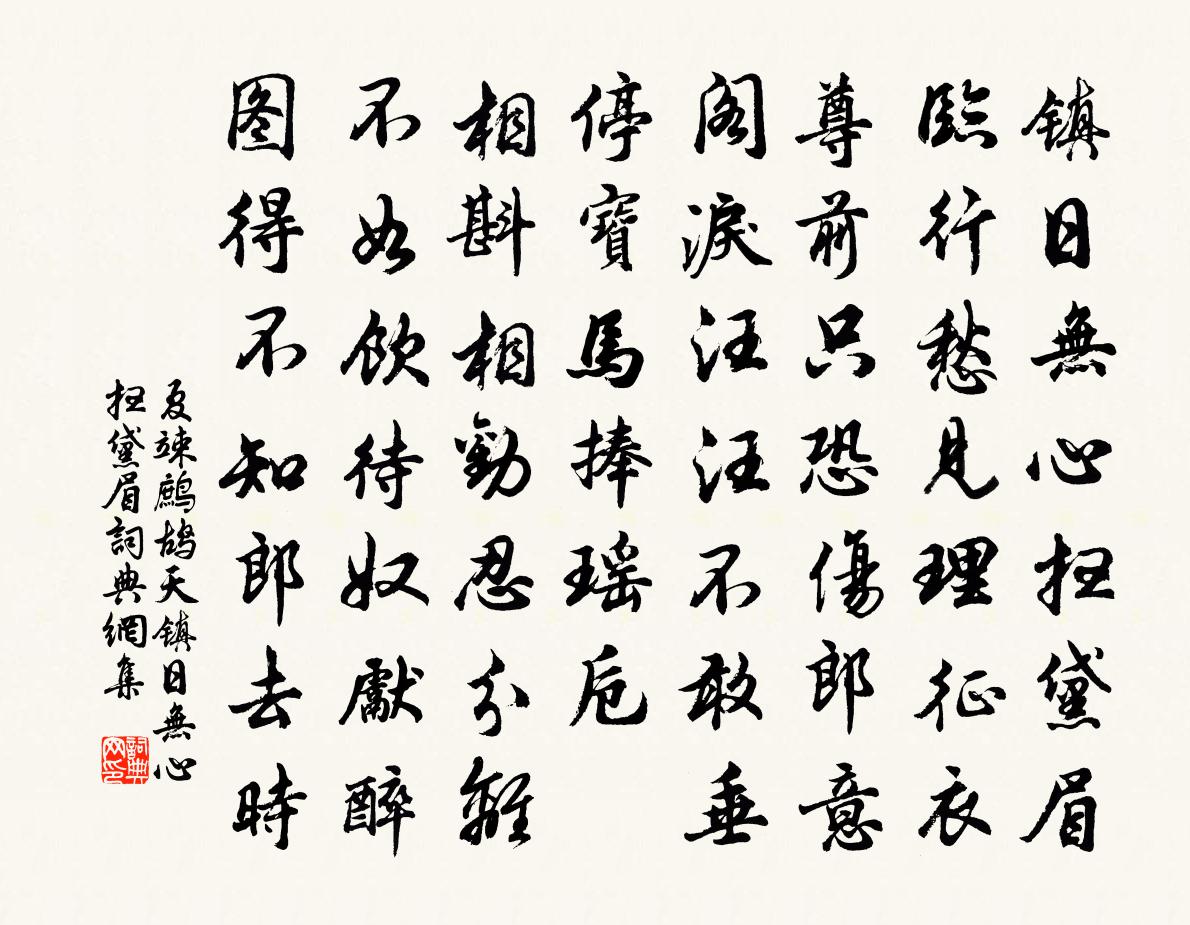 镇日無心扫黛眉
臨行愁見理征衣
尊前只恐傷郎意
阁淚汪汪不敢垂
停寶馬捧瑶卮
相斟相勸忍分離
不如飲待奴獻醉
图得不知郎去時
夏竦鷓鴣天镇日無心
扫黛眉詞典網集
詞典
网印